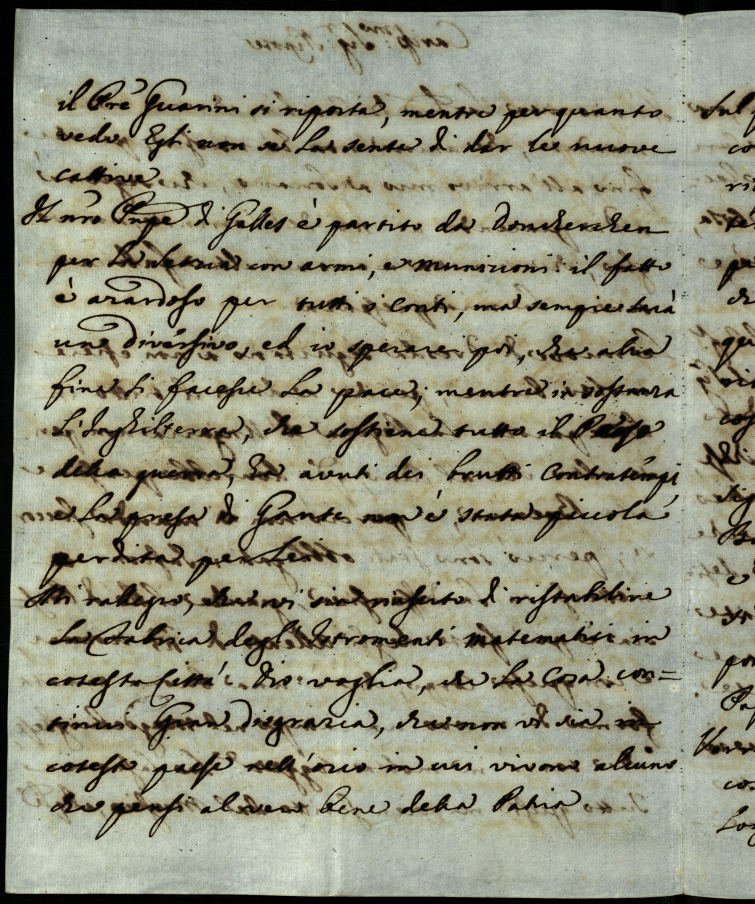 il Pre Guarini si riporta, mentre per quanto
vedo Egli non se la sente di dar le nuove
cattive.
Il nro Pnpe di Galles è partito da Donckercken
per la Scozia con armi, e munizioni: il fatto
è azardoso per tutti i conti, ma sempre sarà
una diversivo, ed io sperarei poi, che alla
fine si facesse la pace; mentre in sostanza
l'Inghilterra, che sostiene tutto il Peso
della guerra, ha avuti dei brutti contratempi
e la presa di Gante non è stata piccola
perdita per Lei.
Mi rallegro, che vi sia riuscito di ristabilire
la fabrica degl'Istromenti matematici in
cotesta Città: Dio voglia, che la cosa con=
tinui. Gran disgrazia, che non vi sia in
cotesto paese nell'ozio in cui vivono alcuno
che pensi al vero bene della Patria